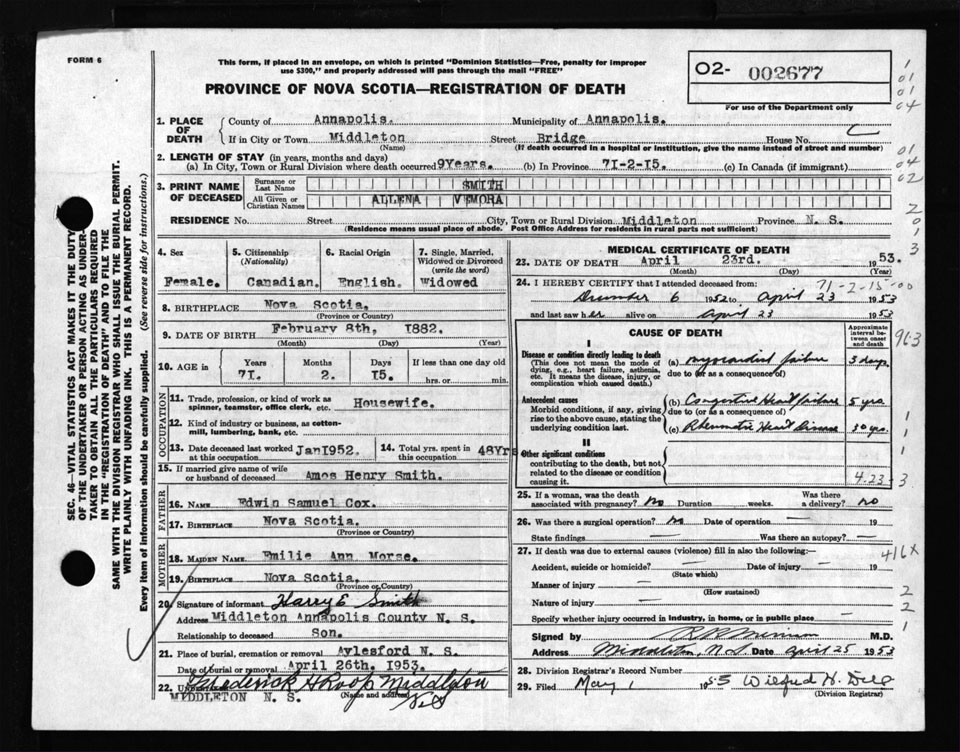 FORM 6
This form, if placed in an envelope, on which is printed "Dominion Statistics—Free, penalty for improper
use $300," and properly addressed will pass through the mail "FREE"
PROVINCE OF NOVA SCOTIA—REGISTRATION OF DEATH
02- 002677
For use of the Department only
1. PLACE OF DEATH
County of Annapolis. Municipality of Annapolis.
If in City or Town Middleton Street Bridge House No.
(Name) (If death occurred in a hospital or institution, give the name instead of street and number)
2. LENGTH OF STAY (in years, months and days)
(a) In City, Town or Rural Division where death occurred 9Years. (b) In Province 71-2-15. (c) In Canada (if immigrant)
3. PRINT NAME OF DECEASED
Surname or Last Name SMITH
All Given or Christian Names ALLENA VEMORA
RESIDENCE No. Street City, Town or Rural Division Middleton Province N. S.
(Residence means usual place of abode. Post Office Address for residents in rural parts not sufficient)
4. Sex Female.
5. Citizenship (Nationality) Canadian.
6. Racial Origin English.
7. Single, Married, Widowed or Divorced (write the word) Widowed
8. BIRTHPLACE Nova Scotia.
(Province or Country)
9. DATE OF BIRTH February 8th, 1882.
(Month) (Day) (Year)
10. AGE in Years 71. Months 2. Days 15. If less than one day old hrs. or min.
OCCUPATION
11. Trade, profession, or kind of work as
spinner, teamster, office clerk, etc. Housewife.
12. Kind of industry or business, as cotton-
mill, lumbering, bank, etc.
13. Date deceased last worked at this occupation Jan1952.
14. Total yrs. spent in this occupation 48Yrs
15. If married give name of wife
or husband of deceased Amos Henry Smith.
FATHER
16. NAME Edwin Samuel Cox.
17. BIRTHPLACE Nova Scotia.
(Province or Country)
MOTHER
18. MAIDEN NAME Emilie Ann Morse.
19. BIRTHPLACE Nova Scotia.
(Province or Country)
20. Signature of informant Harry E Smith
Address Middleton Annapolis County N. S.
Relationship to deceased Son.
21. Place of burial, cremation or removal Aylesford N. S.
Date of burial or removal April 26th. 1953.
22. Frederick H Roop Middleton
(Name and address) N.S
MIDDLETON N. S.
MEDICAL CERTIFICATE OF DEATH
23. DATE OF DEATH April 23rd. 1953.
(Month) (Day) (Year)
71-2-15-00
24. I HEREBY CERTIFY that I attended deceased from:
December 6 1952 to April 23 1953
and last saw her alive on April 23 1953
CAUSE OF DEATH
Approximate interval between onset and death
I
Disease or condition directly leading to death
(This does not mean the mode of
dying, e.g., heart failure, asthenia,
etc. It means the disease, injury, or
complication which caused death.)
(a) Myocardial failure 3 days
due to (or as a consequence of)
Antecedent causes
Morbid conditions, if any, giving
rise to the above cause, stating the
underlying condition last.
(b) Congestive Heart failure 5 yrs
due to (or as a consequence of)
(c) Rheumatic Heart Disease 30 yrs.
II
Other significant conditions
contributing to the death, but not
related to the disease or condition
causing it.
4-23-3
25. If a woman, was the death
associated with pregnancy? No Duration weeks. Was there
a delivery? no
26. Was there a surgical operation? No Date of operation — 19
State findings — Was there an autopsy? —
27. If death was due to external causes (violence) fill in also the following:—
Accident, suicide or homicide? — Date of injury — 19
(State which)
Manner of injury —
(How sustained)
Nature of injury —
Specify whether injury occurred in industry, in home, or in public place —
Signed by M.D.
Address Middleton, N.S. Date April 25 1953
28. Division Registrar's Record Number
29. Filed May 1 1953 Wilfred H. Dill
(Division Registrar)
963
416X
SEC. 46—VITAL STATISTICS ACT MAKES IT THE DUTY
OF THE UNDERTAKER OR PERSON ACTING AS UNDER-
TAKER TO OBTAIN ALL THE PARTICULARS REQUIRED
IN THE "REGISTRATION OF DEATH" AND TO FILE THE
SAME WITH THE DIVISION REGISTRAR WHO SHALL ISSUE THE BURIAL PERMIT.
WRITE PLAINLY WITH UNFADING INK. THIS IS A PERMANENT RECORD.
Every item of Information should be carefully supplied. (See reverse side for instructions.)